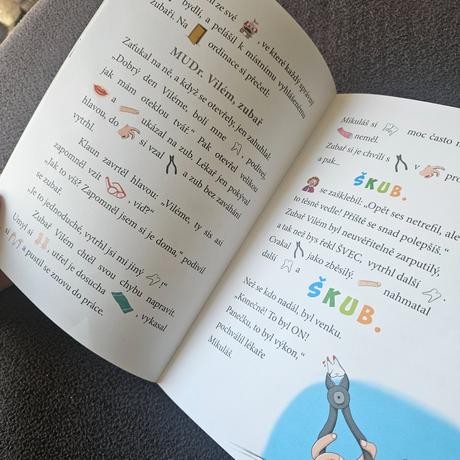 ze své , ve které každý správný
bydlí, a pelášil k místnímu vyhlášenému
zubaři. Na ordinace si přečetl:
MUDr. Vilém, zubař
Zaťukal na ně, a když se otevřely, jen zahuhlal:
„Dobrý den Viléme, bolí mne , podívej,
jak mám oteklou tvář.“ Pak otevřel velikou
a ukázal na zub. Lékař jen pokýval
hlavou, do si vzal a zub bez zaváhání
vytrhl.
Klaun zavrtěl hlavou: „Viléme, ty sis asi
zapomněl vzít , viď?“
„Jak to víš? Zapomněl jsem si je doma,“ podivil
se zubař.
„Je to jednoduché, vytrhl jsi mi jiný !“
Zubař Vilém chtěl svou chybu napravit.
Umyl si , utřel je dosucha , vykasal
si a pustil se znovu do práce.
Mikuláš si moc často n
neměl.
Zubař si je chvíli s v pro
a pak...
ŠKUB.
se zašklebil: „Opět ses netrefil, ale
to těsně vedle! Příště se snad polepšíš.“
Zubař Vilém byl neuvěřitelně zarputilý,
a tak než bys řekl ŠVEC, vytrhl další .
Cvakal jako zběsilý, nahmatal
další a
ŠKUB.
Než se kdo nadál, byl venku.
„Konečně! To byl ON!
Panečku, to byl výkon,“
pochválil lékaře
Mikuláš.